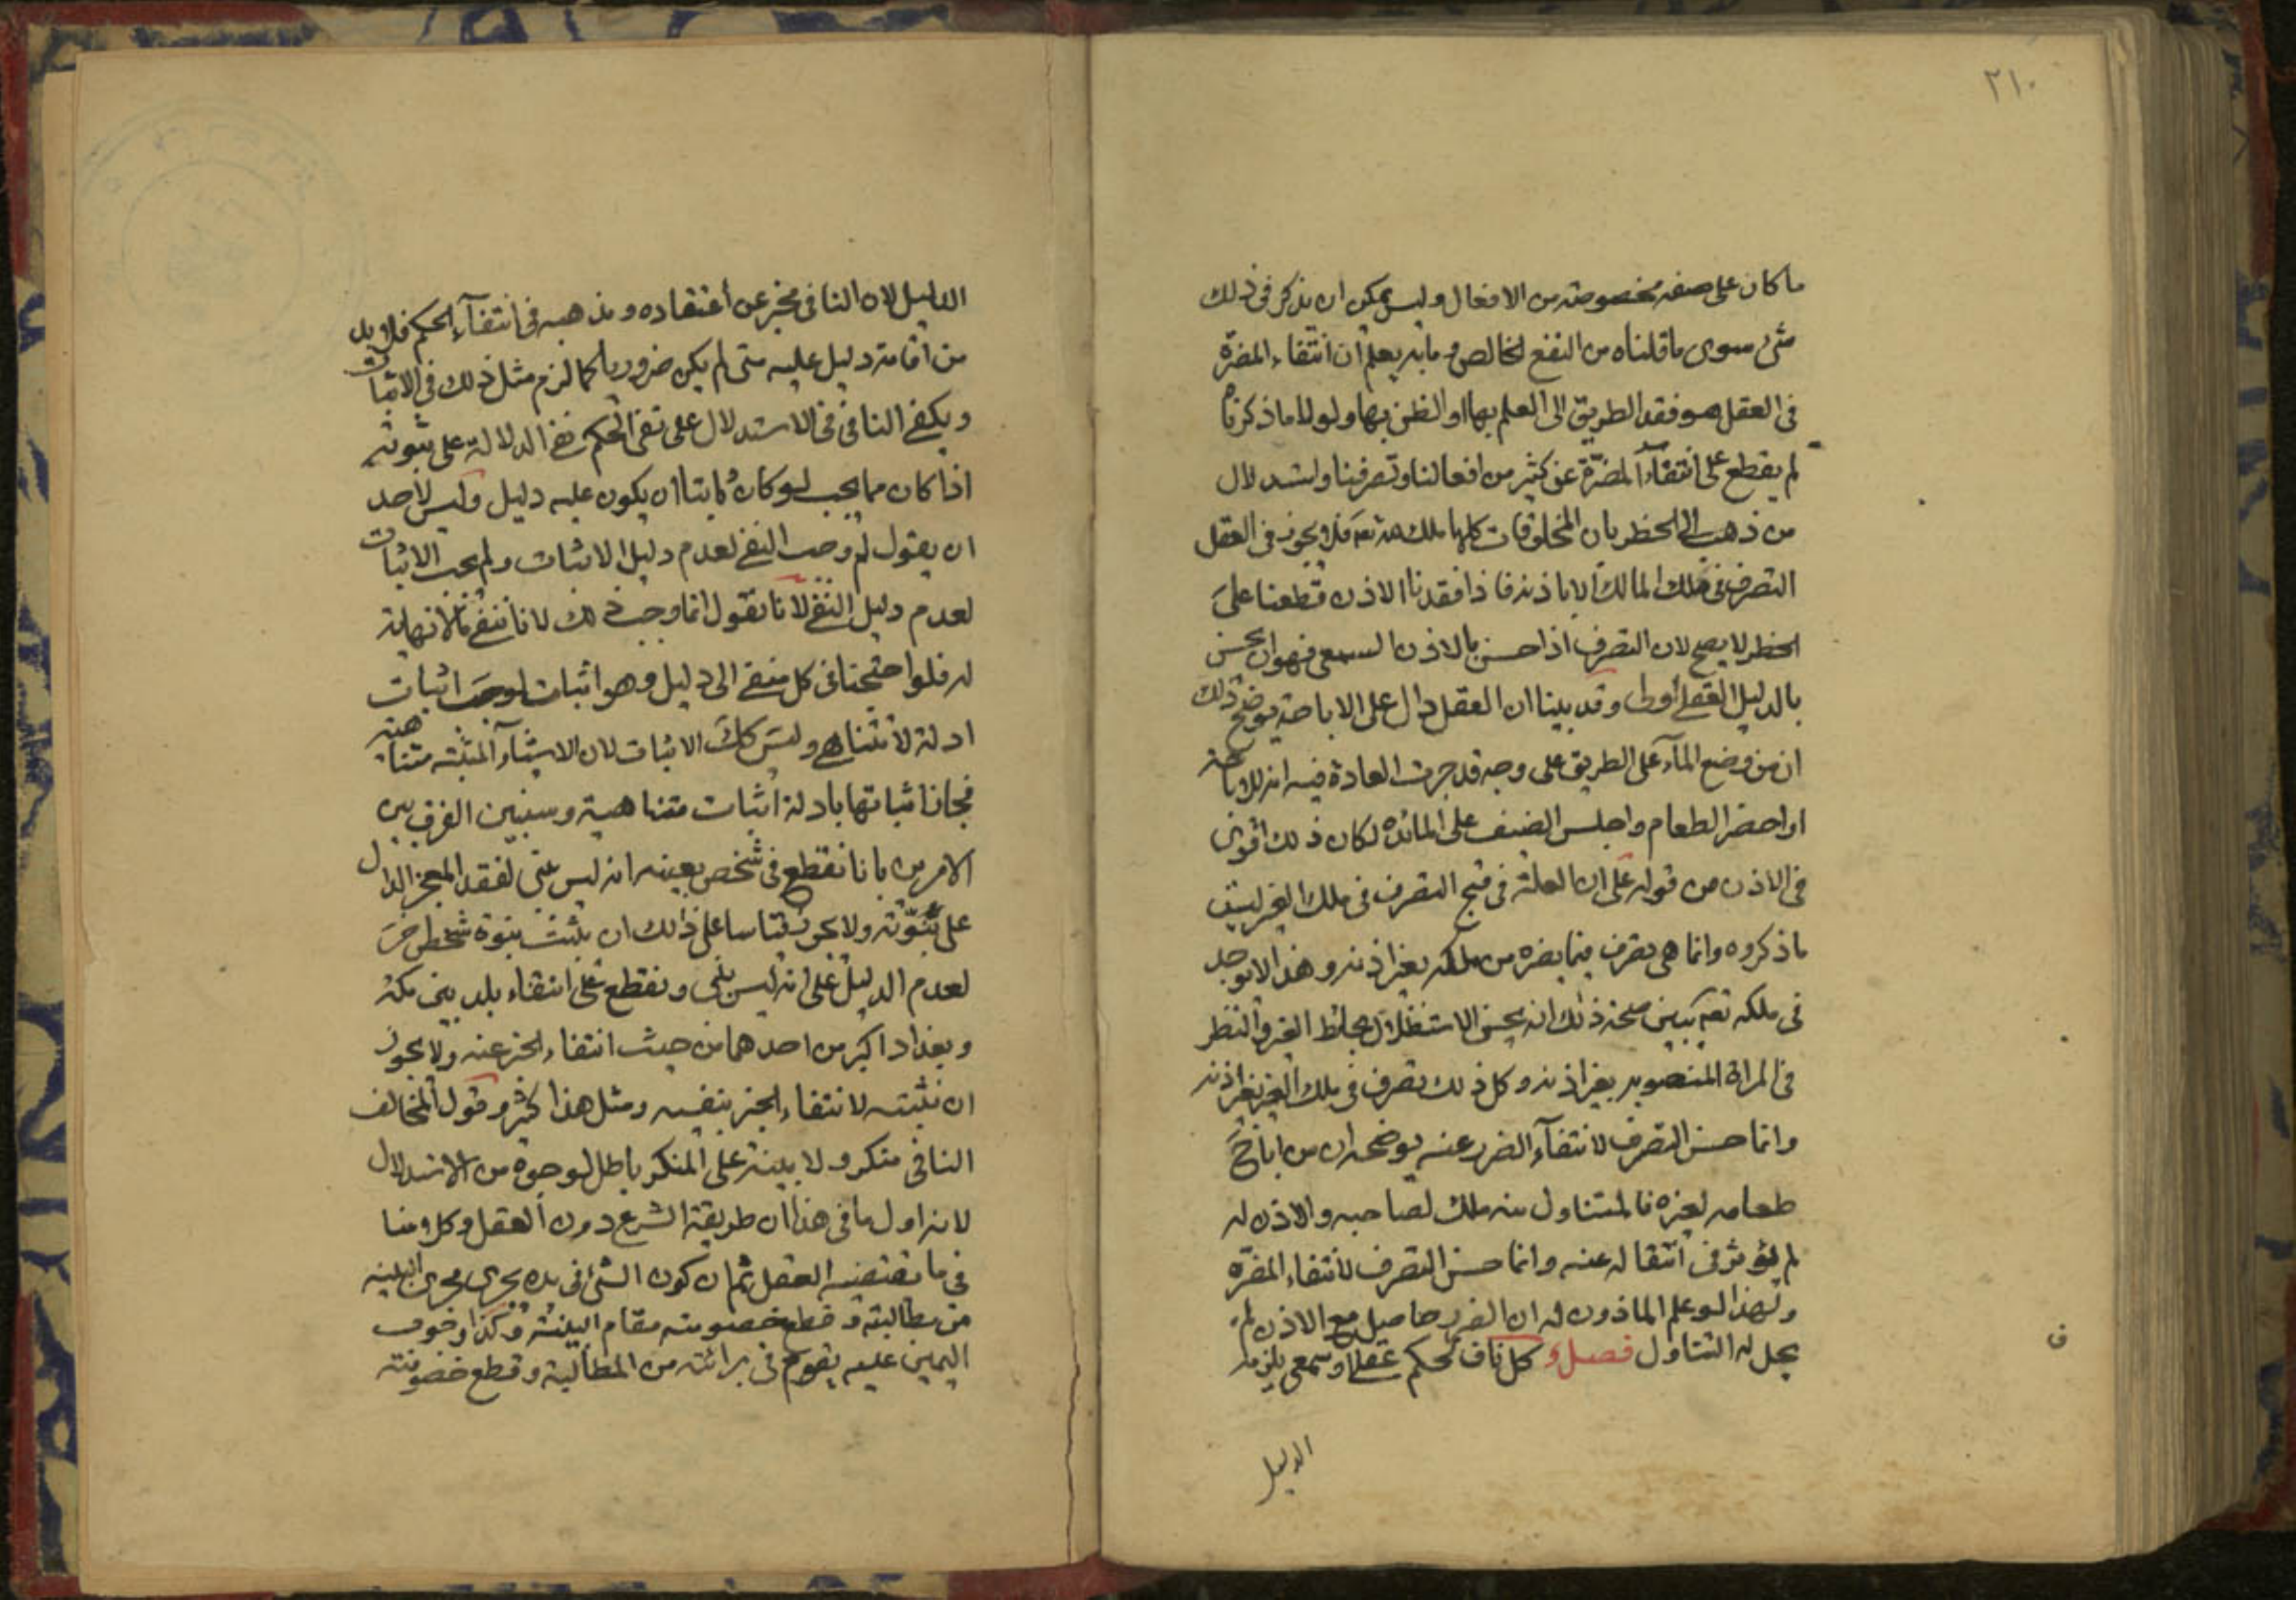 ٢١٠
ما كان على صفة مخصوصة من الافعال وليس يمكن ان يذكر فى ذلك
شئ سوى ما قلناه من النفع الخالص وما به يعلم ان انتفاء المضرة
فى العقل هو فقد الطريق الى العلم بها او الظن بها ولولا ما ذكرناه
لم يقطع على انتفاء المضرة عن كثير من افعالنا وتصرفنا واستدلال
من ذهب الى الحظر بان المخلوقات كلها ملك الله تعه فلا يجوز فى العقل
التصرف فى ملك المالك الا باذنه فاذا فقدنا الاذن قطعنا على
الحظر لا يصح لان التصرف اذا حسن بالاذن السمعى فهو ان يحسن
بالدليل العقلى أولى وقد بينا ان العقل دال على الاباحة يوضح ذلك
ان من وضع الماء على الطريق على وجه قد جرت العادة فيه انه للاباحة
او احضر الطعام واجلس الضيف على المائدة لكان ذلك اقوى
فى الاذن من قوله على ان العلة فى قبح التصرف فى ملك الغير ليست
ما ذكروه وانما هى تصرف فيما يضره من ملكه بغير اذنه وهذا لا يوجد
فى ملكه تعه يبين صحة ذلك انه يحسن الاستظلال بحائط الغير والنظر
فى المراة المنصوبه بغير اذنه وكل ذلك تصرف فى ملك الغير بغير اذنه
وانما حسن التصرف لانتفاء الضرر عنه يوضحه ان من اباح
طعامه لغيره فالمتناول منه ملك لصاحبه والاذن له
لم يؤثر فى انتقاله عنه وانما حسن التصرف لانتفاء المضرة
ولهذا لو علم الماذون له ان الضرر حاصل مع الاذن لم
يحل له التناول فصل و كل ناف لحكم عقلى او سمعى يلزمه
الدليل
ف
الدليل لان النافى مخبر عن اعتقاده ومذهبه فى انتفاء الحكم فلا بد
من اقامة دليل عليه متى لم يكن ضروريا كما لزم مثل ذلك فى الاثبات
ويكفى النافى فى الاستدلال على نفى الحكم نفى الدلالة على ثبوته
اذا كان مما يجب لو كان ثابتا ان يكون عليه دليل وليس لاحد
ان يقول لم وجب النفى لعدم دليل الاثبات ولم يجب الاثبات
لعدم دليل النفى لانا نقول انما وجب ذلك لانا ننفى ما لا نهاية
له فلو احتجنا فى كل منفى الى دليل وهو اثبات لوجب اثبات
ادلة لا تتناهى وليس كك الاثبات لان الاشياء المثبته متناهية
فجاز اثباتها بادلة اثبات متناهية وسنبين الفرق بين
الامرين بانا نقطع فى شخص بعينه انه ليس بنبى لفقد المعجز الدال
على نبوّته ولا يجوز قياسا على ذلك ان يثبت بنوة شخص اخر
لعدم الدليل على انه ليس بنبى ونقطع على انتفاء بلد بين مكة
وبغداد اكبر من احدهما من حيث انتفاء الخبر عنه ولا يجوز
ان نثبته لانتفاء الخبر بنفيه ومثل هذا كثير وقول المخالف
النافى منكر ولا بينة على المنكر باطل لوجوه من الاستدلال
لانه اول ما فى هذا ان طريقة الشرع دون العقل وكلامنا
فى ما يقتضيه العقل ثم ان كون الشئ فى يده يجرى مجرى البينه
من مطالبته وقطع خصومته مقام البينة وكذا وخوف
اليمين عليه يقوم فى برائته من المطالبة وقطع خصومته